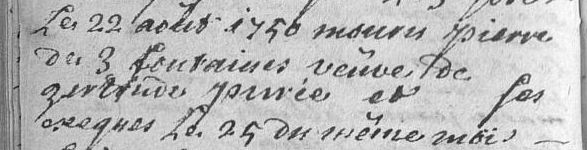 Le 22 août 1750 mouru pierre
de 3 fontaines veûve de
gertrude purée et ses
exeques Le 25 du même mois